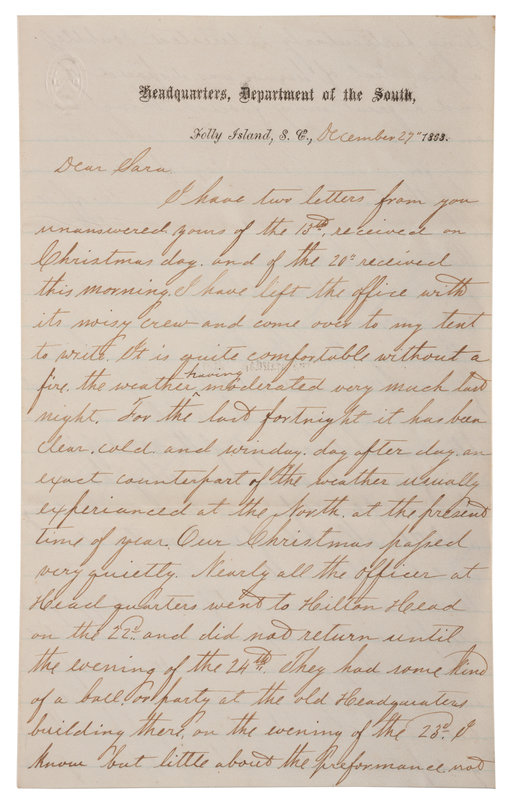 Headquarters, Department of the South,
Folly Island, S. C., December 27th 1863.
Dear Sara.
I have two letters from you
unanswered, yours of the 13th, received on
Christmas day. and of the 20th received
this morning. I have left the office with
its noisy crew and come over to my tent
to write. It is quite comfortable without a
fire. the weather having moderated very much last
night. For the last fortnight it has been
clear. cold. and winday. day after day. an
exact counterpart of the weather usually
experianced at the North. at the present
time of year. Our Christmas passed
very quietly. Nearly all the officer at
Head quarters went to Hilton Head
on the 22d and did not return until
the evening of the 24th. They had some kind
of a ball. or party at the old Headquaters
building there. on the evening of the 23d. I
know but little about the preformance not